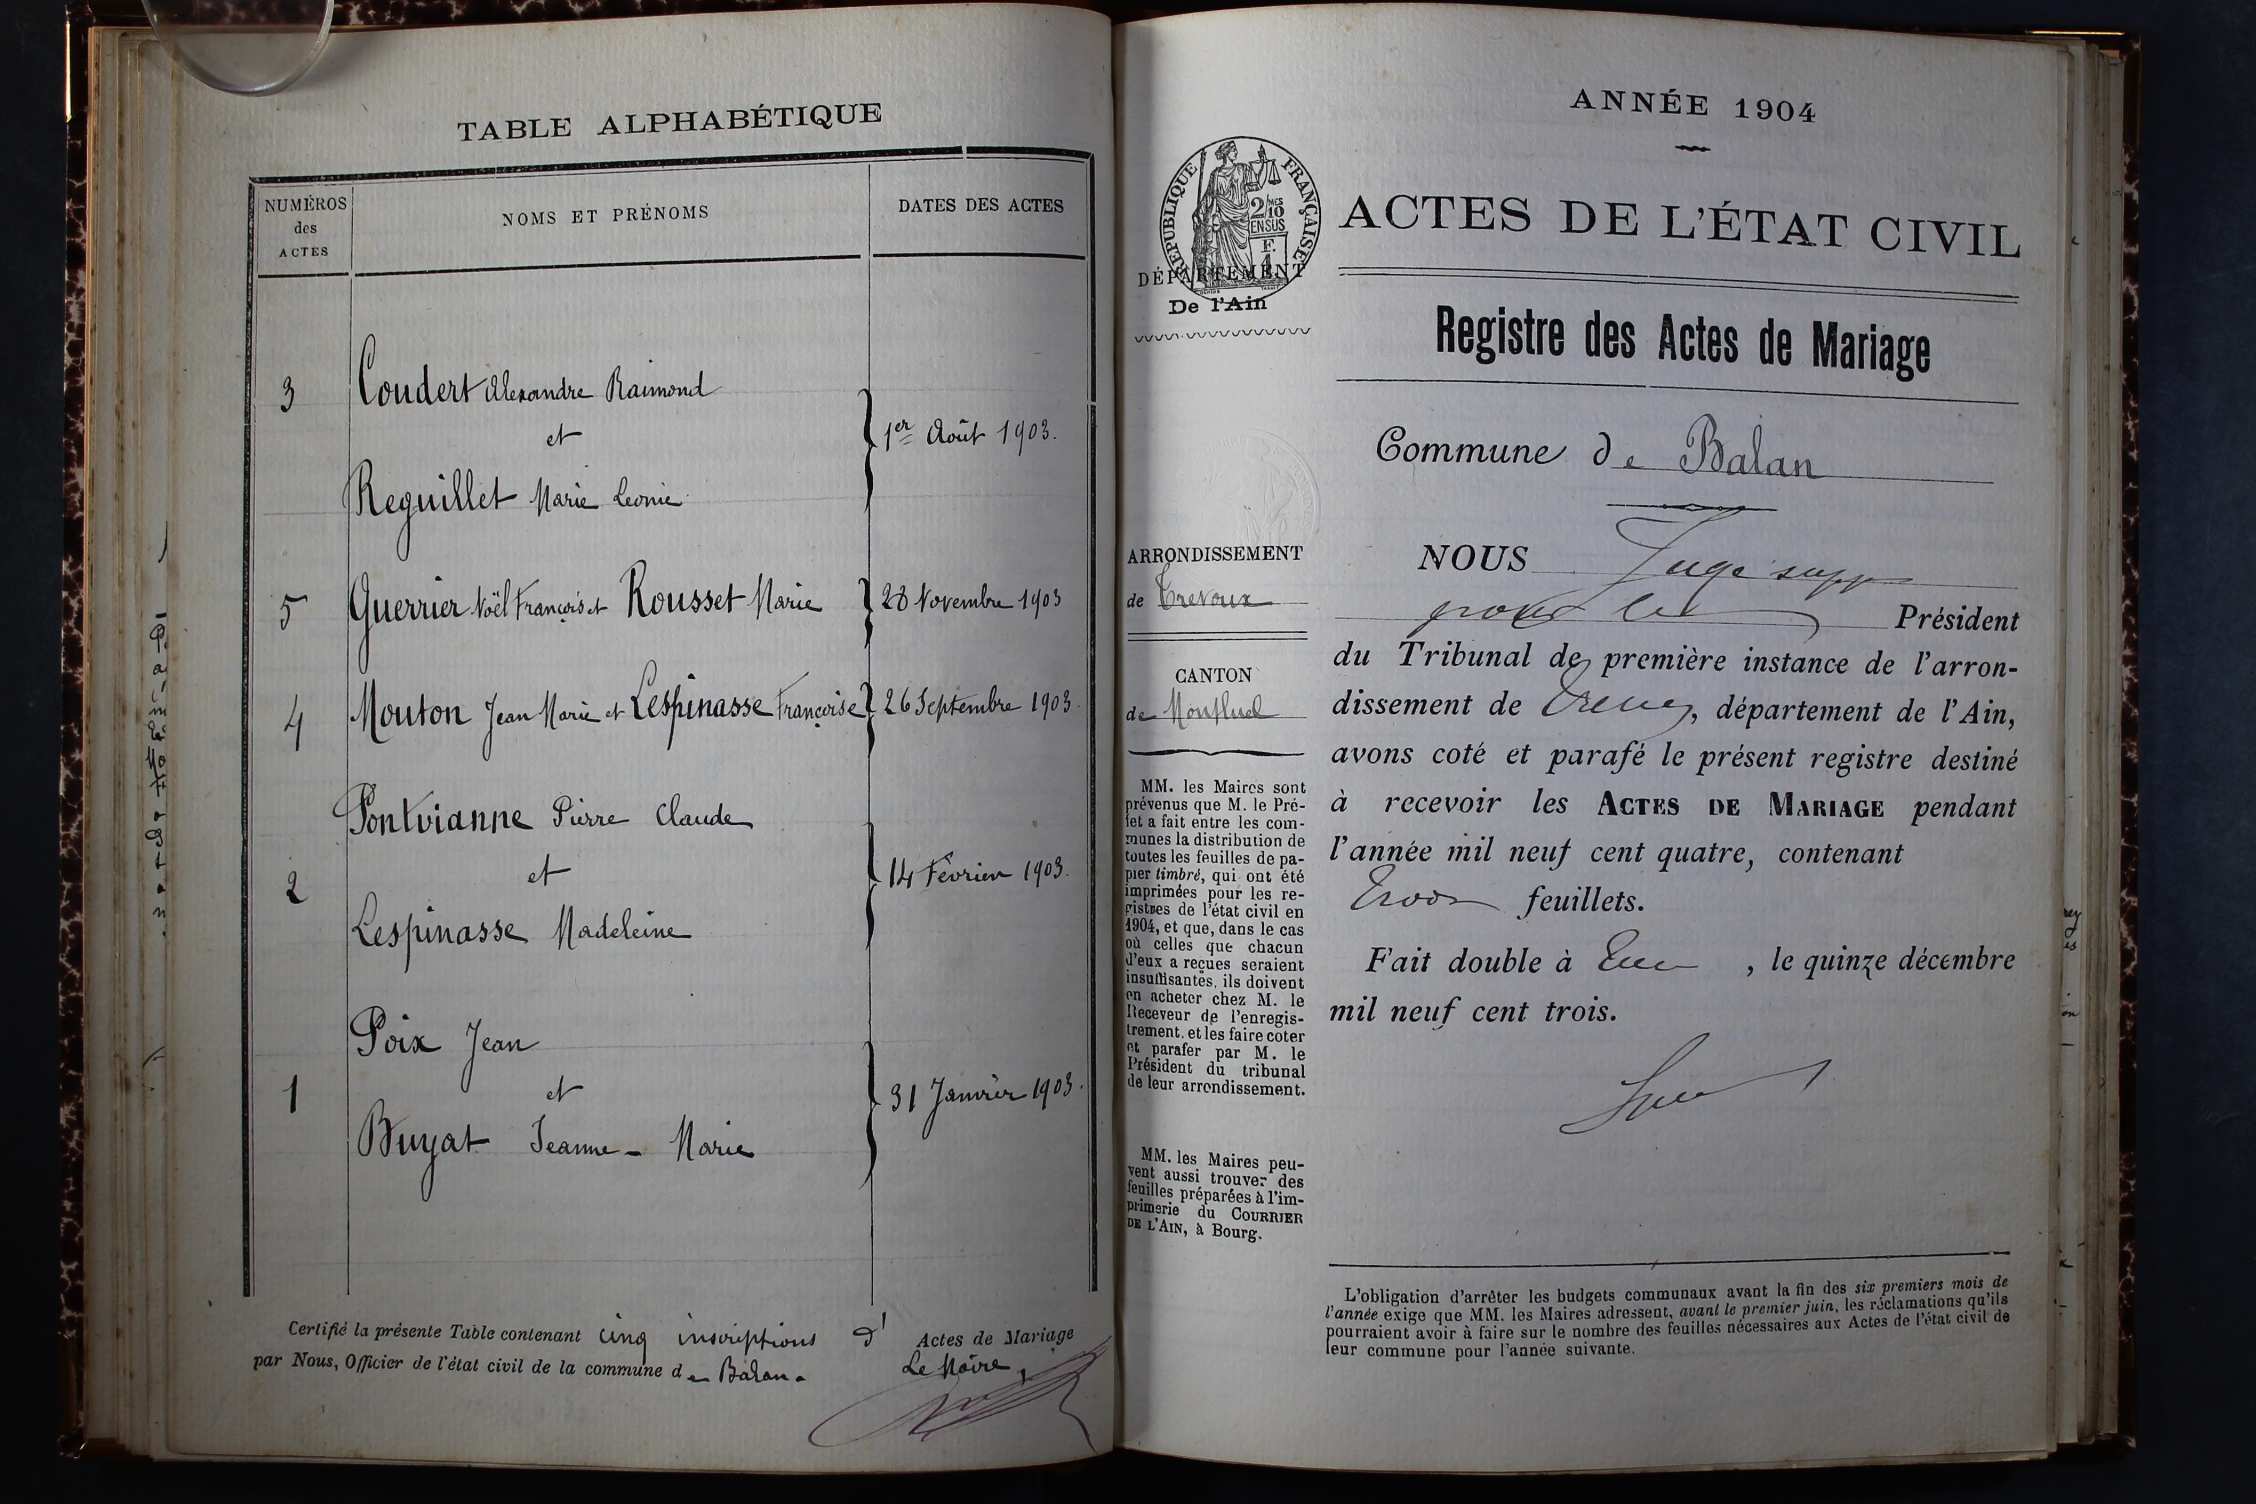 TABLE ALPHABÉTIQUE
NUMÉROS
des
ACTES
NOMS ET PRÉNOMS
DATES DES ACTES
3
Coudert Alexandre Raimond
et
Reguillet Marie Leonie
1er Août 1903.
5
Guerrier Noël François et Rousset Marie
28 Novembre 1903
4
Mouton Jean Marie et Lespinasse Françoise
26 Septembre 1903.
2
Pontvianne Pierre Claude
et
Lespinasse Madeleine
14 Février 1903.
1
Poix Jean
et
Buyat Jeanne-Marie
31 Janvier 1903.
Certifié la présente Table contenant cinq inscriptions d' Actes de Mariage
par Nous, Officier de l'état civil de la commune de Balan.
Le Maire,
ANNÉE 1904
RÉPUBLIQUE FRANÇAISE
2/10
EN SUS
DÉPARTEMENT
De l'Ain
ACTES DE L'ÉTAT CIVIL
Registre des Actes de Mariage
Commune de Balan
ARRONDISSEMENT
de Trevoux
CANTON
de Montluel
MM. les Maires sont
prévenus que M. le Pré-
fet a fait entre les com-
munes la distribution de
toutes les feuilles de pa-
pier timbré, qui ont été
imprimées pour les re-
gistres de l'état civil en
1904, et que, dans le cas
où celles que chacun
d'eux a reçues seraient
insuffisantes, ils doivent
en acheter chez M. le
Receveur de l'enregis-
trement, et les faire coter
et parafer par M. le
Président du tribunal
de leur arrondissement.
MM. les Maires peu-
vent aussi trouver des
feuilles préparées à l'im-
primerie du COURRIER
DE L'AIN, à Bourg.
NOUS Juge supp
pour le Président
du Tribunal de première instance de l'arron-
dissement de Trevoux, département de l'Ain,
avons coté et parafé le présent registre destiné
à recevoir les ACTES DE MARIAGE pendant
l'année mil neuf cent quatre, contenant
trois feuillets.
Fait double à , le quinze décembre
mil neuf cent trois.
L'obligation d'arrêter les budgets communaux avant la fin des six premiers mois de
l'année exige que MM. les Maires adressent, avant le premier juin, les réclamations qu'ils
pourraient avoir à faire sur le nombre des feuilles nécessaires aux Actes de l'état civil de
leur commune pour l'année suivante.